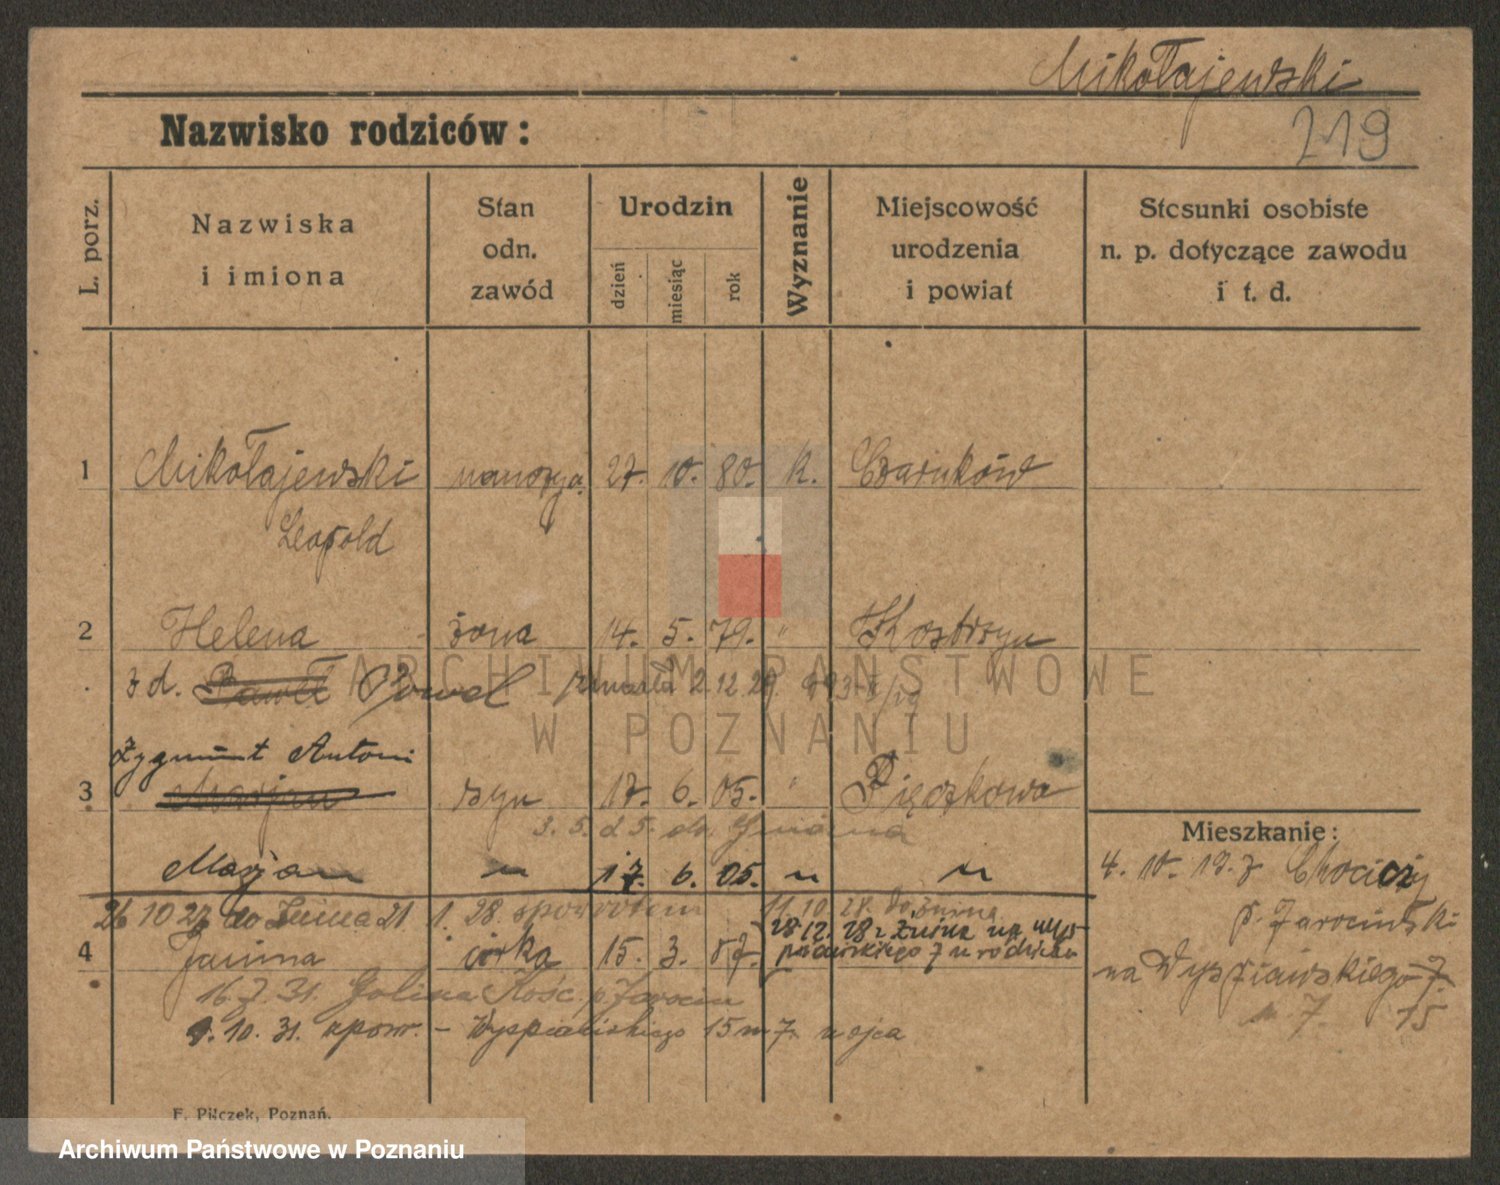 Mikołajewski
Nazwisko rodziców:
219
L. porz.
Nazwiska
i imiona
Stan
odn.
zawód
Urodzin
dzień
miesiąc
rok
Wyznanie
Miejscowość
urodzenia
i powiat
Stosunki osobiste
n. p. dotyczące zawodu
i t. d.
1 Mikołajewski 27. 10. 80. k. Czarnków
Leopold
2 Helena żona 14. 5. 79. " Kostrzyn
z d. Paweł Powel zmarła 2 12 29.
ARCHIWUM PAŃSTWOWE
W POZNANIU
Zygmunt Antoni
3 Marjan syn 17. 6. 05. " Pięczkowo
3. 5. d. Gniezna
Mieszkanie:
Marjan " 17. 6. 05. " "
4. 10. 19. z Chociczy
26 10 27 do Żnina 21 1. 28. spowrotem 11. 10. 28. do Żnina
p. Jarociński
28 12. 28 z Żnina na Wys
4 Janina córka 15. 3. 07. piańskiego 7 u rodziców
na Wyspiańskiego 7.
16. 7. 31. Golina Kośc. p. Jarocin
m. 7. 15
9. 10. 31. spowr. - Wyspiańskiego 15 m 7. u ojca
F. Pilczek, Poznań.
Archiwum Państwowe w Poznaniu